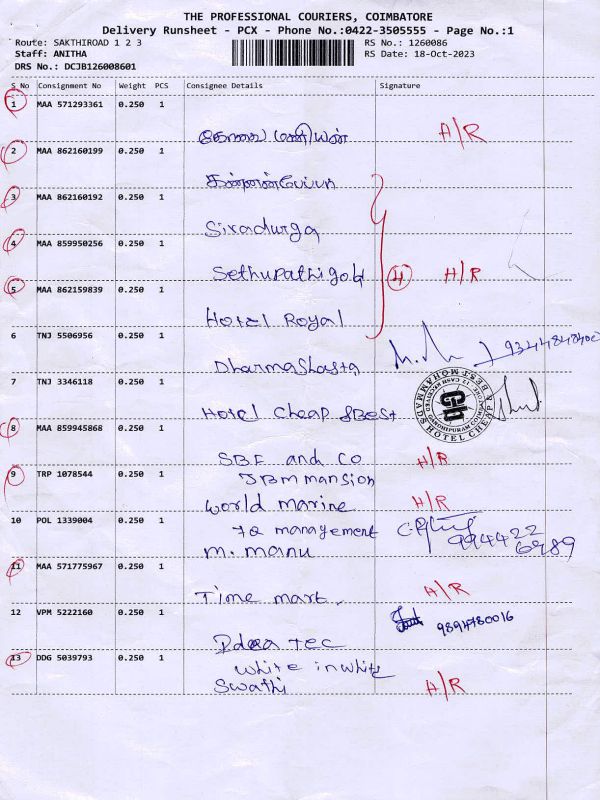 THE PROFESSIONAL COURIERS, COIMBATORE
Delivery Runsheet - PCX - Phone No.:0422-3505555 - Page No.:1
Route: SAKTHIROAD 1 2 3 RS No.: 1260086
Staff: ANITHA RS Date: 18-Oct-2023
DRS No.: DCJB126008601
S No Consignment No Weight PCS Consignee Details Signature
1 MAA 571293361 0.250 1
கோவை மணியன் A/R
2 MAA 862160199 0.250 1
3 MAA 862160192 0.250 1
Sivadurga
4 MAA 859950256 0.250 1
Sethupathi gold 4 H/R
5 MAA 862159839 0.250 1
Hotel Royal
6 TNJ 5506956 0.250 1
Dharmashasta
7 TNJ 3346118 0.250 1
Hotel Cheap &Best
8 MAA 859945868 0.250 1
SBF and Co H/R
JBM mansion
9 TRP 1078544 0.250 1
World marine H/R
10 POL 1339004 0.250 1
7Q management
M. Manu 994422
6989
11 MAA 571775967 0.250 1
Time mart. H/R
12 VPM 5222160 0.250 1
9894780016
tec
13 DDG 5039793 0.250 1
White in white
Swathi H/R